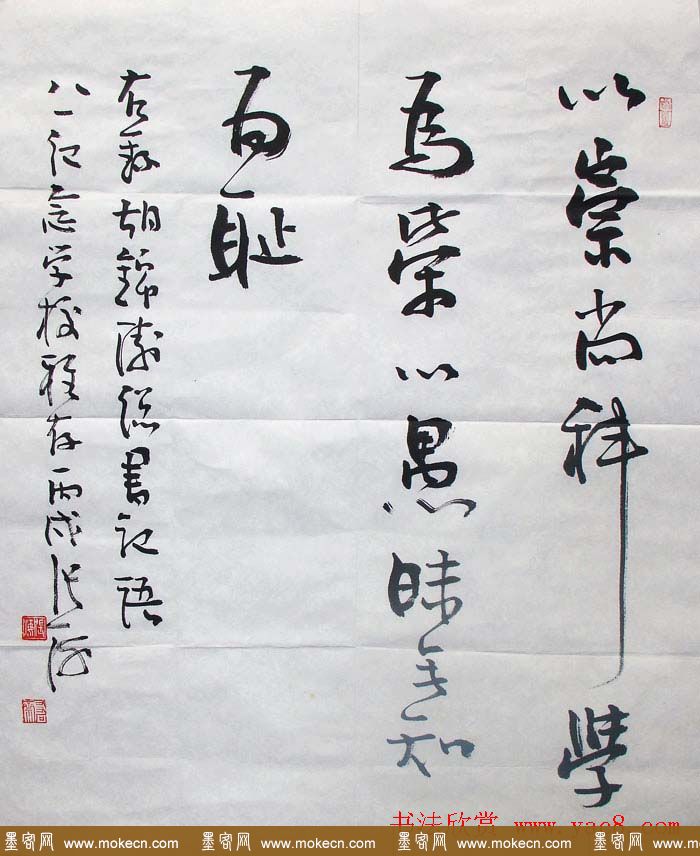 以崇尚科學
為榮以愚昧無知
為耻
右錄胡錦濤總書記語
八一記念学校雅存丙戌
书法欣赏 www.yac8.com
墨客网 www.mokecn.com 墨客网 www.mokecn.com 墨客网 www.mokecn.com 墨客网 www.mokecn.com